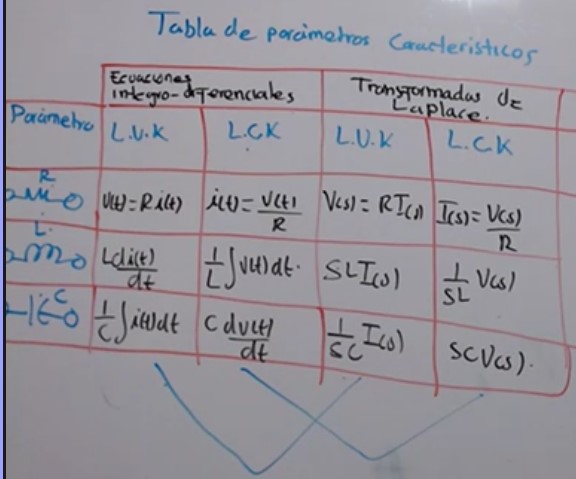 Tabla de parámetros Característicos
Ecuaciones integro-diferenciales
Transformadas de Laplace.
Parámetro L.V.K L.C.K L.V.K L.C.K
R V(t)=Ri(t) i(t)=V(t)/R V(s)=RI(s) I(s)=V(s)/R
L. Ldi(t)/dt 1/L∫v(t)dt. SLI(s) 1/SL V(s)
C 1/C∫i(t)dt Cdv(t)/dt 1/SC I(s) SCV(s).